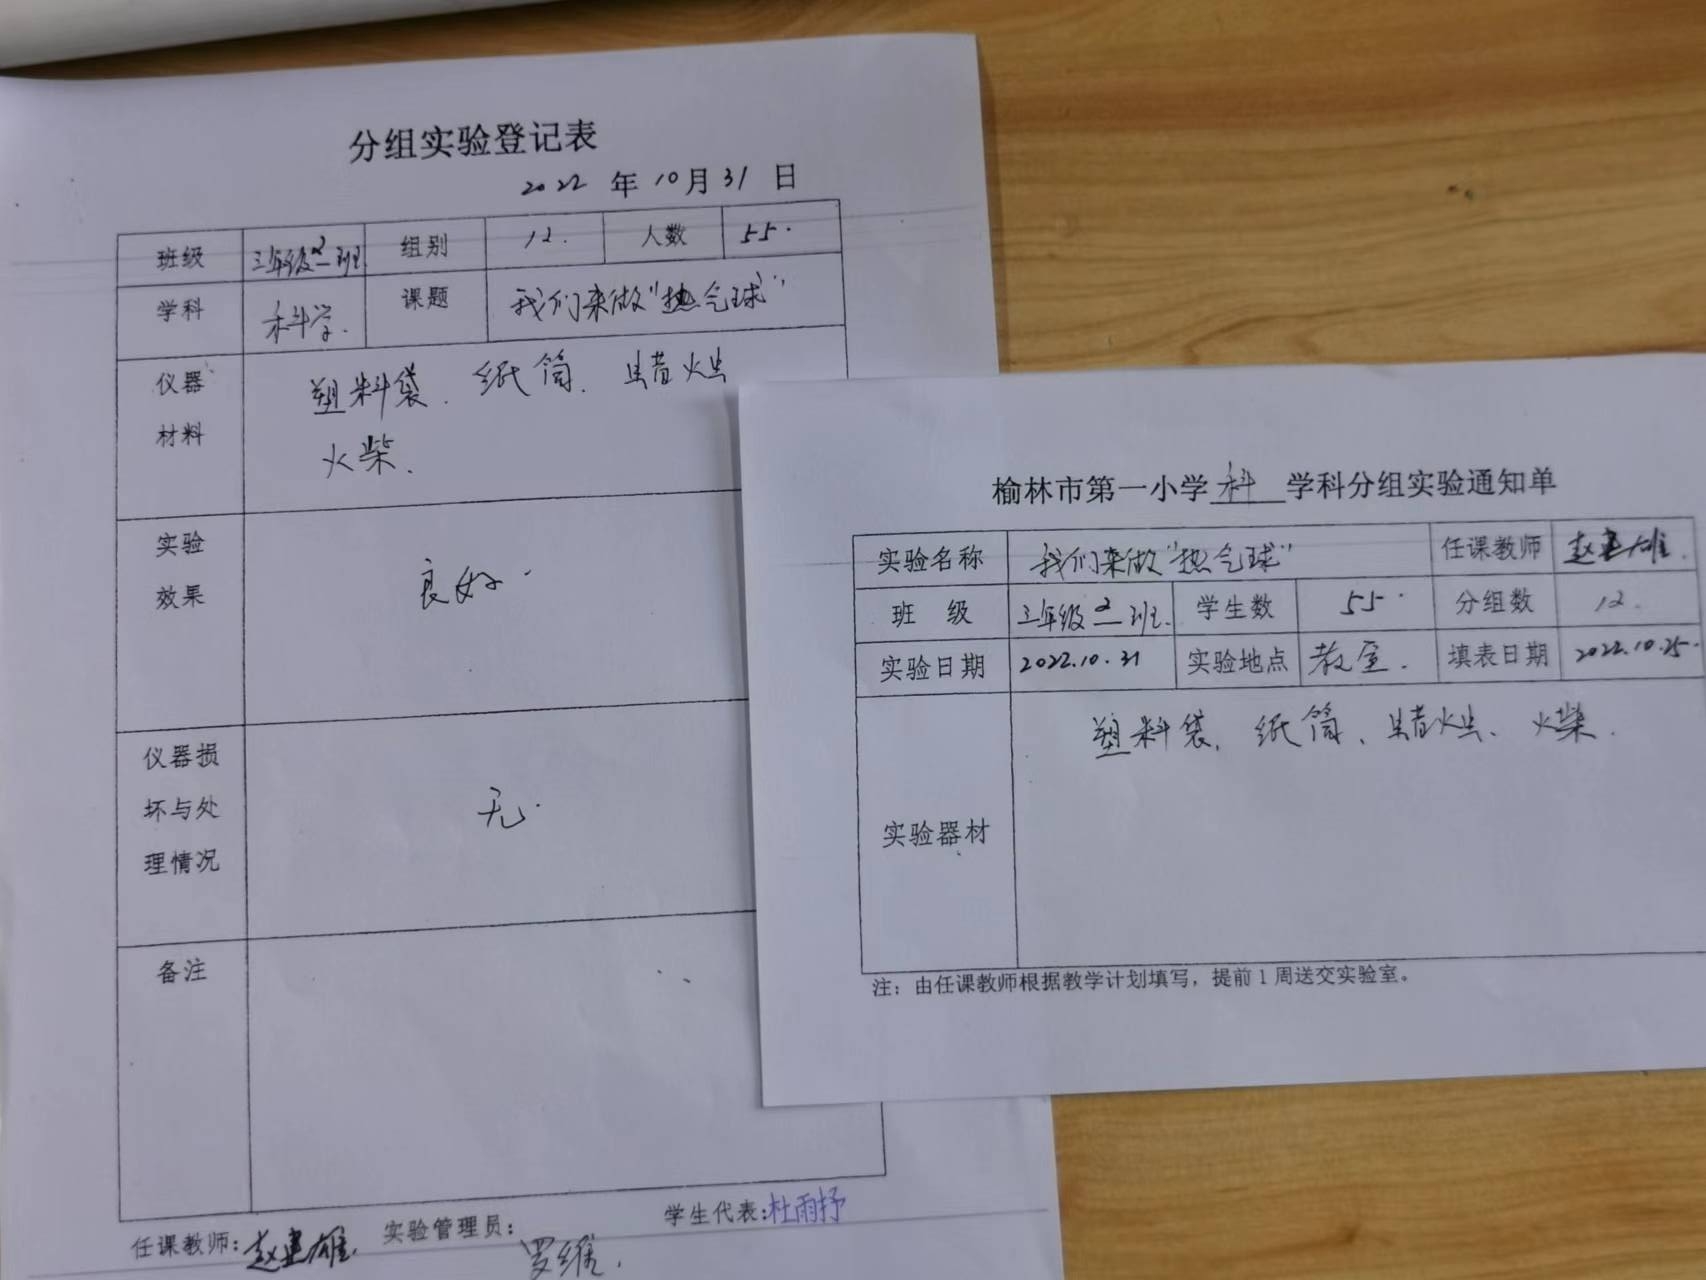 分组实验登记表
2022 年 10 月 31 日
班级 三年级2班 组别 12. 人数 55.
学科 科学. 课题 我们来做“热气球”
仪器材料 塑料袋、纸筒、蜡烛
火柴.
实验效果 良好.
仪器损坏与处理情况 无.
备注
任课教师: 赵建雄 实验管理员: 罗维. 学生代表: 杜雨抒
榆林市第一小学 科 学科分组实验通知单
实验名称 我们来做“热气球” 任课教师 赵建雄.
班 级 三年级2班. 学生数 55. 分组数 12.
实验日期 2022.10.31 实验地点 教室. 填表日期 2022.10.25.
实验器材 塑料袋、纸筒、蜡烛、火柴.
注：由任课教师根据教学计划填写，提前 1 周送交实验室。